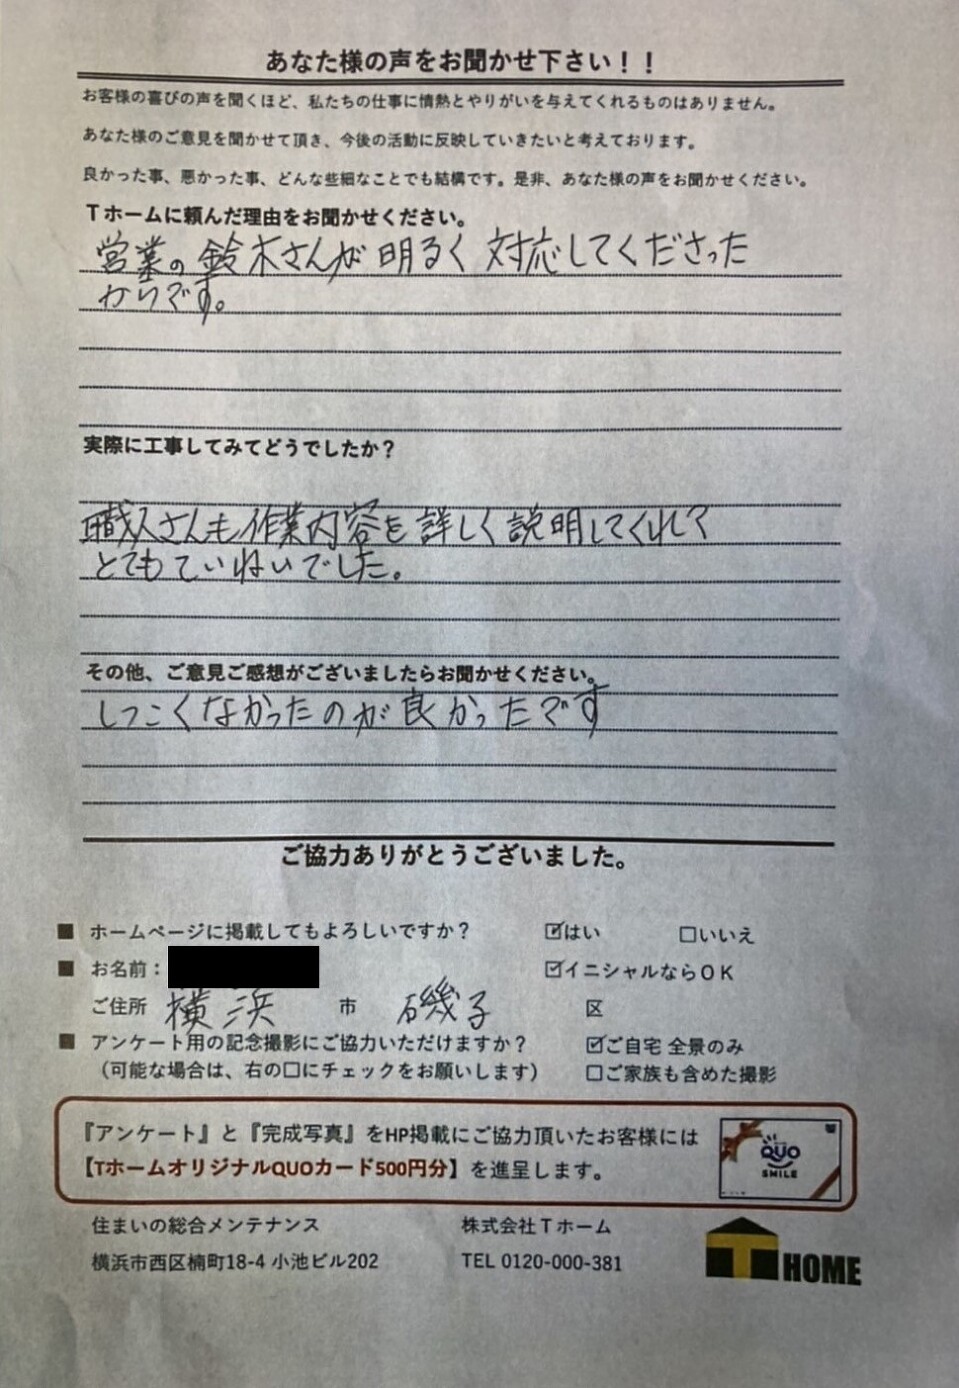 あなた様の声をお聞かせ下さい！！
お客様の喜びの声を聞くほど、私たちの仕事に情熱とやりがいを与えてくれるものはありません。
あなた様のご意見を聞かせて頂き、今後の活動に反映していきたいと考えております。
良かった事、悪かった事、どんな些細なことでも結構です。是非、あなた様の声をお聞かせください。
Ｔホームに頼んだ理由をお聞かせください。
営業の鈴木さんが明るく対応してくださった
からです。
実際に工事してみてどうでしたか？
職人さんも作業内容を詳しく説明してくれて
とてもていねいでした。
その他、ご意見ご感想がございましたらお聞かせください。
しつこくなかったのが良かったです
ご協力ありがとうございました。
■ ホームページに掲載してもよろしいですか？ ☑はい □いいえ
■ お名前： ☑イニシャルならＯＫ
ご住所 横浜 市 磯子 区
■ アンケート用の記念撮影にご協力いただけますか？ ☑ご自宅 全景のみ
（可能な場合は、右の□にチェックをお願いします） □ご家族も含めた撮影
『アンケート』と『完成写真』をHP掲載にご協力頂いたお客様には
【TホームオリジナルQUOカード500円分】を進呈します。
QUO
SMILE
住まいの総合メンテナンス 株式会社Ｔホーム
横浜市西区楠町18-4 小池ビル202 TEL 0120-000-381
T HOME